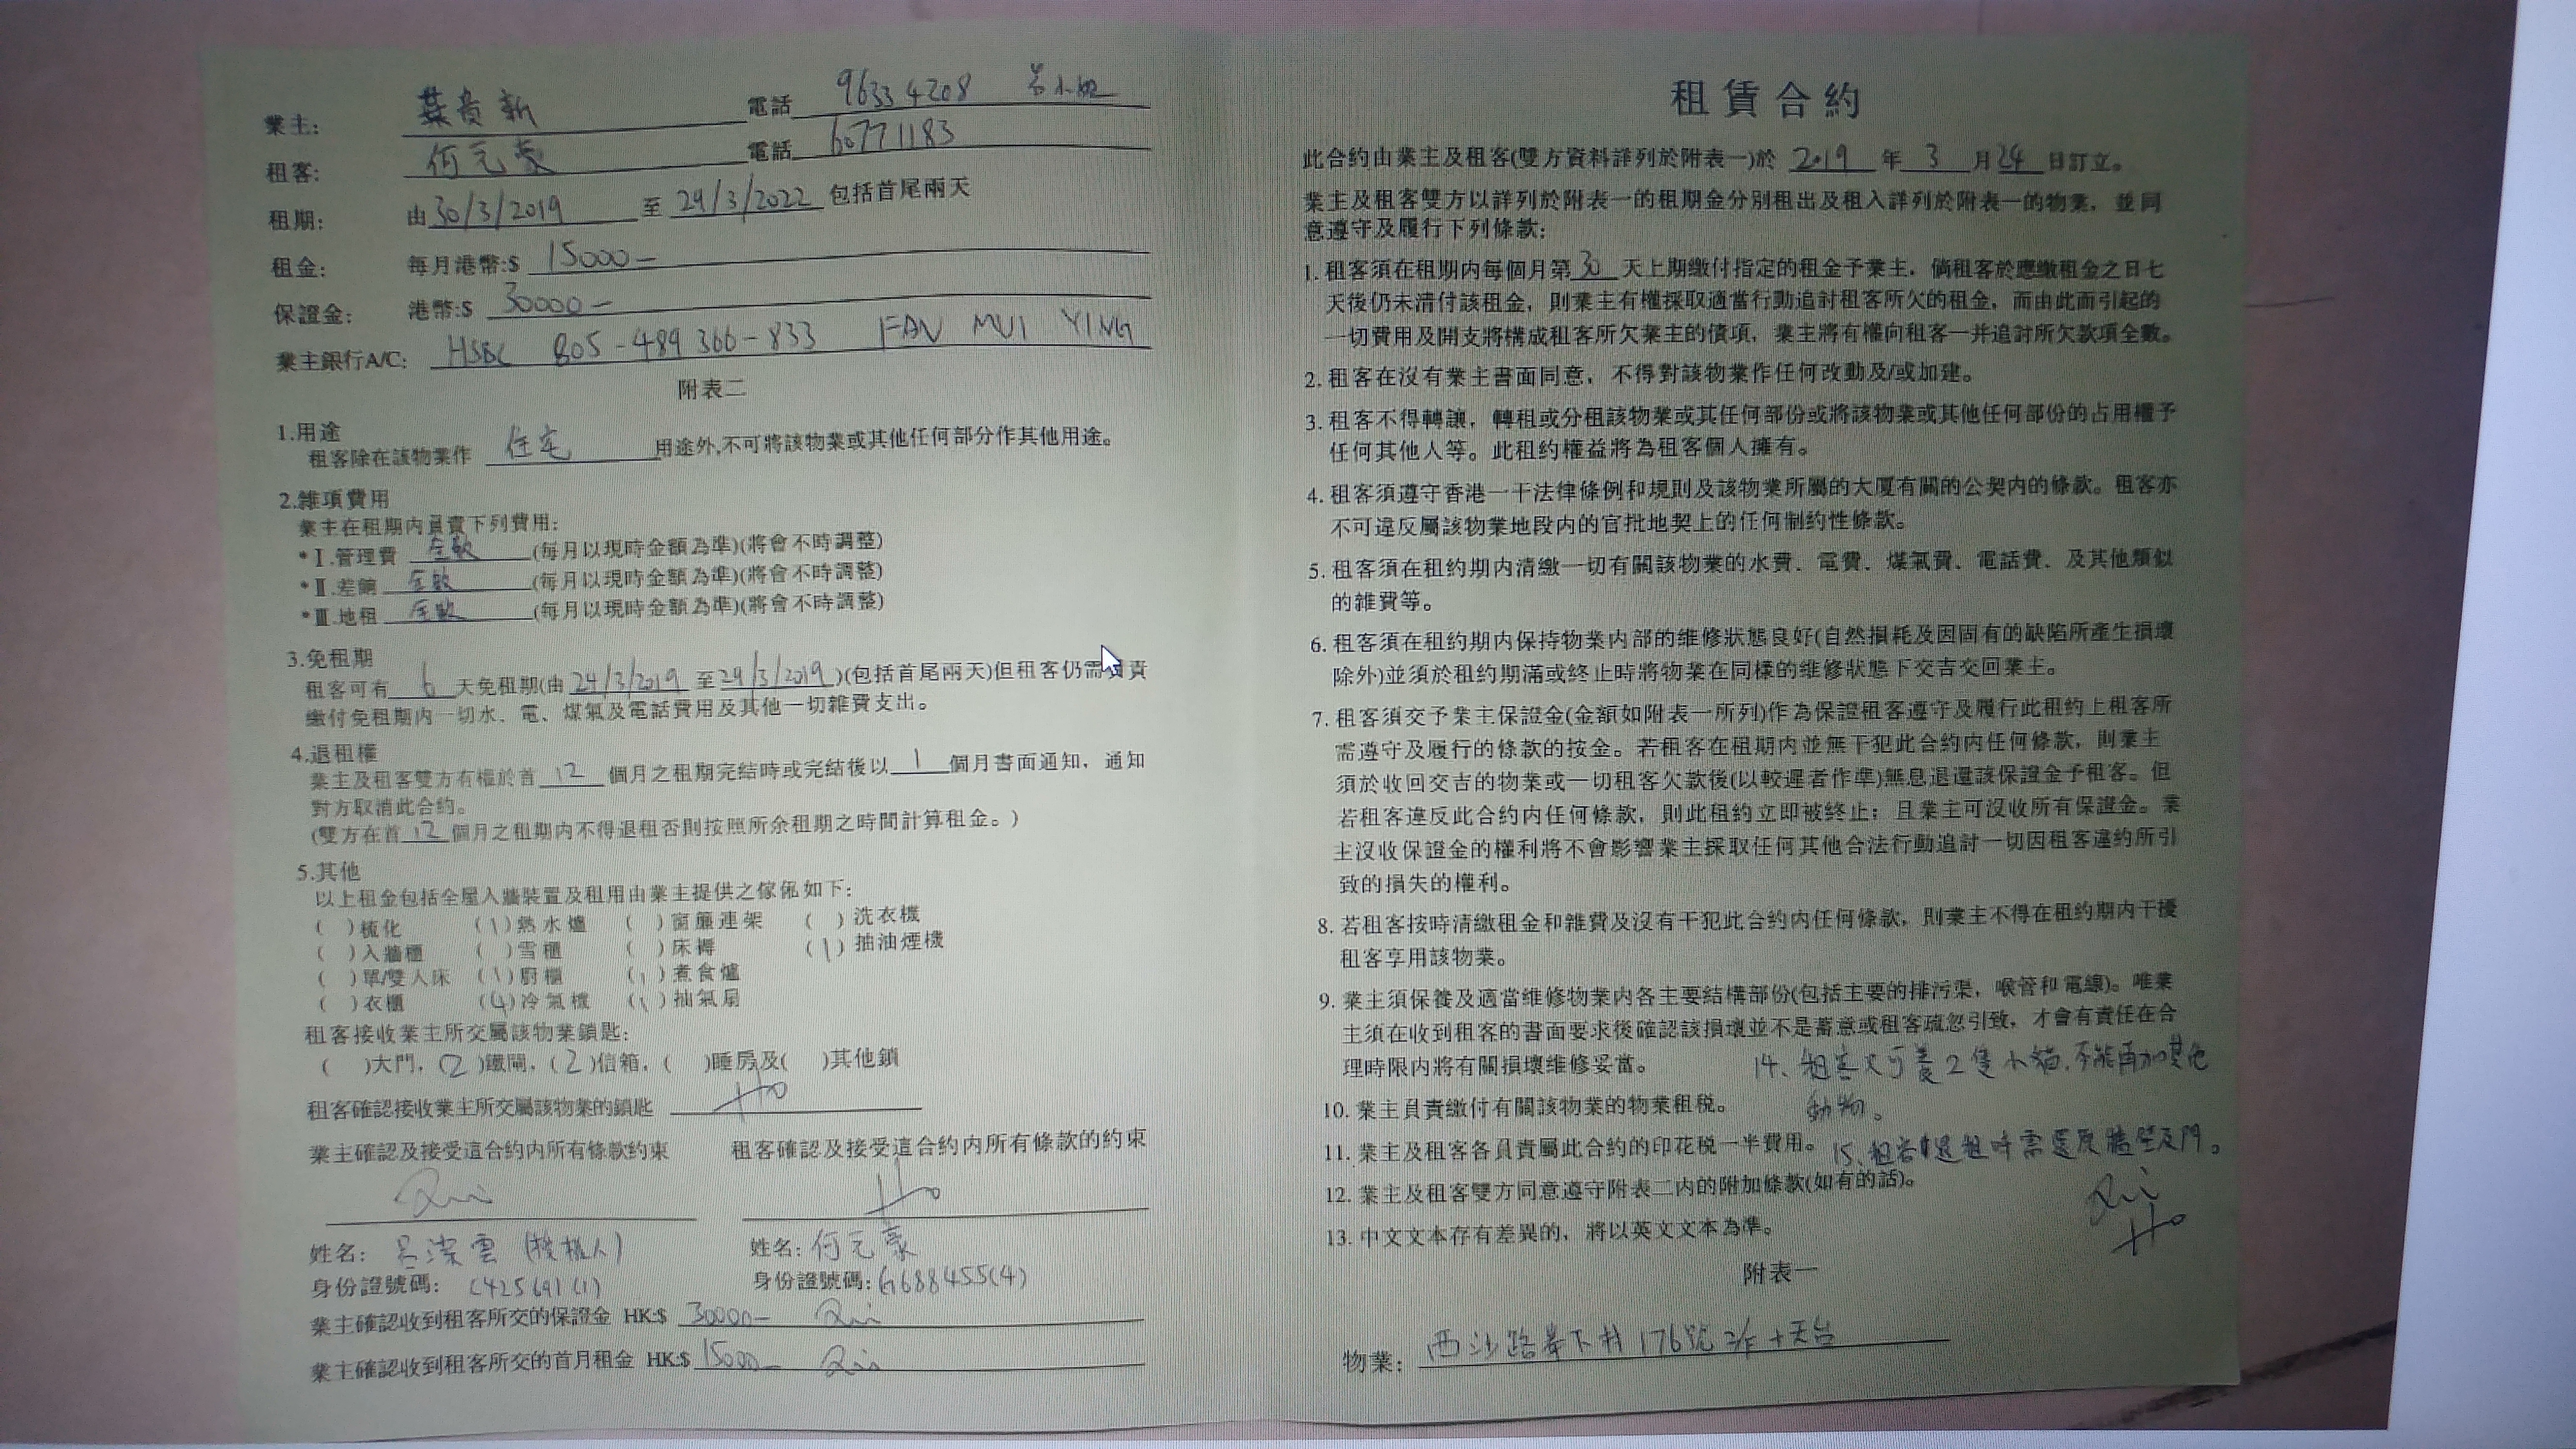 業主: 葉貴新 電話 9633 4208 呂小姐
租客: 何元豪 電話 60771183
租期: 由 30/3/2019 至 29/3/2022 包括首尾兩天
租金: 每月港幣:$ 15000—
保證金: 港幣:$ 30000—
業主銀行A/C: HSBC 805-489 366-833 FAN MUI YING
附表二
1.用途
租客除在該物業作 住宅 用途外,不可將該物業或其他任何部分作其他用途。
2.雜項費用
業主在租期內負責下列費用:
*Ⅰ.管理費 全數 (每月以現時金額為準)(將會不時調整)
*Ⅱ.差餉 全數 (每月以現時金額為準)(將會不時調整)
*Ⅲ.地租 全數 (每月以現時金額為準)(將會不時調整)
3.免租期
租客可有 6 天免租期(由 24/3/2019 至 29/3/2019)(包括首尾兩天)但租客仍需負責
繳付免租期內一切水、電、煤氣及電話費用及其他一切雜費支出。
4.退租權
業主及租客雙方有權於首 12 個月之租期完結時或完結後以 1 個月書面通知，通知
對方取消此合約。
(雙方在首 12 個月之租期內不得退租否則按照所余租期之時間計算租金。)
5.其他
以上租金包括全屋入牆裝置及租用由業主提供之傢俬如下:
( )梳化 (1)熱水爐 ( )窗簾連架 ( )洗衣機
( )入牆櫃 ( )雪櫃 ( )床褥 (1)抽油煙機
( )單/雙人床 (1)廚櫃 (1)煮食爐
( )衣櫃 (4)冷氣機 (1)抽氣扇
租客接收業主所交屬該物業鎖匙:
( )大門, (2)鐵閘, (2)信箱, ( )睡房及( )其他鎖
租客確認接收業主所交屬該物業的鎖匙 Ho
業主確認及接受這合約內所有條款約束 租客確認及接受這合約內所有條款的約束
Ho
姓名: 呂潔雲 (授權人) 姓名: 何元豪
身份證號碼: C425691(1) 身份證號碼: G688455(4)
業主確認收到租客所交的保證金 HK:$ 30000—
業主確認收到租客所交的首月租金 HK:$ 15000—
租賃合約
此合約由業主及租客(雙方資料詳列於附表一)於 2019 年 3 月 24 日訂立。
業主及租客雙方以詳列於附表一的租期金分別租出及租入詳列於附表一的物業，並同
意遵守及履行下列條款:
1. 租客須在租期內每個月第 30 天上期繳付指定的租金予業主，倘租客於應繳租金之日七
天後仍未清付該租金，則業主有權採取適當行動追討租客所欠的租金，而由此而引起的
一切費用及開支將構成租客所欠業主的債項，業主將有權向租客一并追討所欠款項全數。
2. 租客在沒有業主書面同意，不得對該物業作任何改動及/或加建。
3. 租客不得轉讓，轉租或分租該物業或其任何部份或將該物業或其他任何部份的占用權予
任何其他人等。此租約權益將為租客個人擁有。
4. 租客須遵守香港一干法律條例和規則及該物業所屬的大廈有關的公契內的條款。租客亦
不可違反屬該物業地段內的官批地契上的任何制約性條款。
5. 租客須在租約期內清繳一切有關該物業的水費、電費、煤氣費、電話費、及其他類似
的雜費等。
6. 租客須在租約期內保持物業內部的維修狀態良好(自然損耗及因固有的缺陷所產生損壞
除外)並須於租約期滿或終止時將物業在同樣的維修狀態下交吉交回業主。
7. 租客須交予業主保證金(金額如附表一所列)作為保證租客遵守及履行此租約上租客所
需遵守及履行的條款的按金。若租客在租期內並無干犯此合約內任何條款，則業主
須於收回交吉的物業或一切租客欠款後(以較遲者作準)無息退還該保證金予租客。但
若租客違反此合約內任何條款，則此租約立即被終止；且業主可沒收所有保證金。業
主沒收保證金的權利將不會影響業主採取任何其他合法行動追討一切因租客違約所引
致的損失的權利。
8. 若租客按時清繳租金和雜費及沒有干犯此合約內任何條款，則業主不得在租約期內干擾
租客享用該物業。
9. 業主須保養及適當維修物業內各主要結構部份(包括主要的排污渠，喉管和電線)。唯業
主須在收到租客的書面要求後確認該損壞並不是蓄意或租客疏忽引致，才會有責任在合
理時限內將有關損壞維修妥當。
14. 租客只可養2隻小貓,不能再加其他
動物。
10. 業主負責繳付有關該物業的物業租稅。
11. 業主及租客各負責屬此合約的印花稅一半費用。
15. 租客退租時需還原牆壁及門。
12. 業主及租客雙方同意遵守附表二內的附加條款(如有的話)。
13. 中文文本存有差異的，將以英文文本為準。
Ho
附表一
物業: 西沙路輋下村176號 2/F + 天台